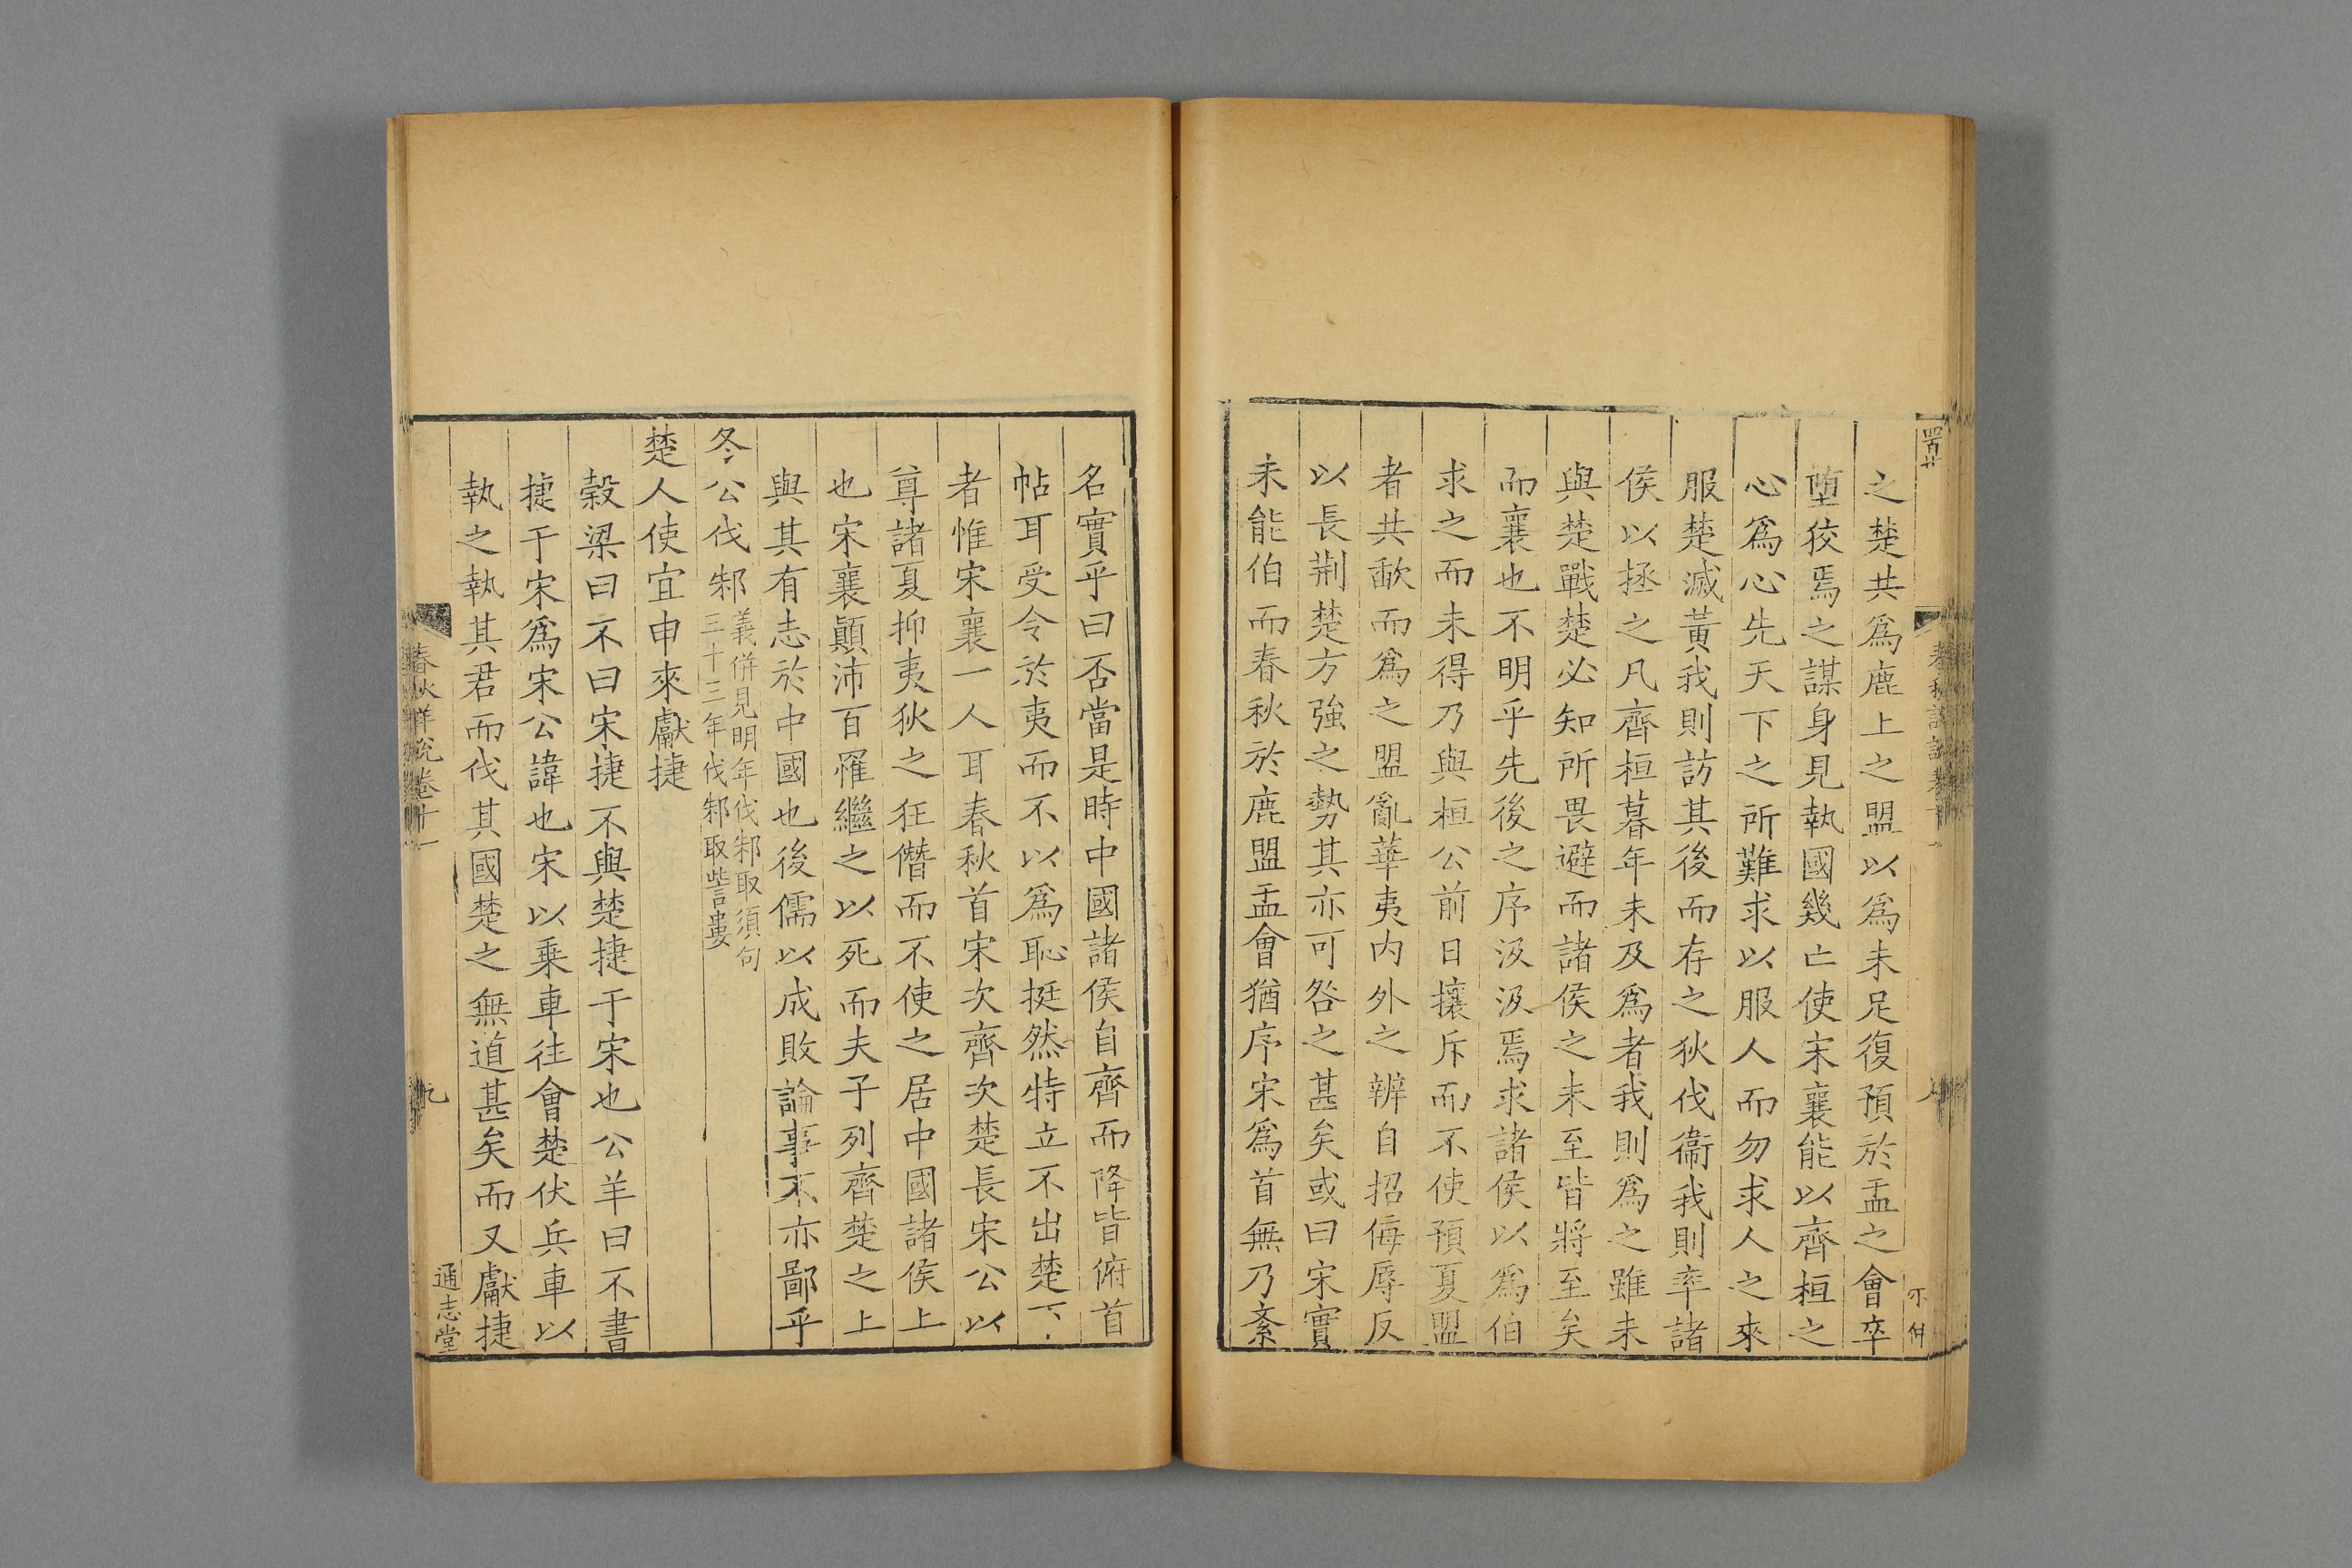 之楚共爲鹿上之盟以爲未足復預於盂之會卒
墮狡焉之謀身見執國幾亡使宋襄能以齊桓之
心爲心先天下之所難求以服人而勿求人之來
服楚滅黃我則訪其後而存之狄伐衞我則率諸
侯以拯之凡齊桓暮年未及爲者我則爲之雖未
與楚戰楚必知所畏避而諸侯之未至皆將至矣
而襄也不明乎先後之序汲汲焉求諸侯以爲伯
求之而未得乃與桓公前日攘斥而不使預夏盟
者共歃而爲之盟亂華夷内外之辨自招侮辱反
以長荆楚方強之勢其亦可咎之甚矣或曰宋實
未能伯而春秋於鹿盟盂會猶序宋爲首無乃紊
名實乎曰否當是時中國諸侯自齊而降皆俯首
帖耳受令於夷而不以爲恥挺然特立不出楚下
者惟宋襄一人耳春秋首宋次齊次楚長宋公以
尊諸夏抑夷狄之狂僭而不使之居中國諸侯上
也宋襄顚沛百罹繼之以死而夫子列齊楚之上
與其有志於中國也後儒以成敗論事不亦鄙乎
冬公伐邾
義併見明年伐邾取須句
三十三年伐邾取訾婁
楚人使宜申來獻捷
穀梁曰不曰宋捷不與楚捷于宋也公羊曰不書
捷于宋爲宋公諱也宋以乗車往會楚伏兵車以
執之執其君而伐其國楚之無道甚矣而又獻捷
春秋詳說卷十一
九
通志堂